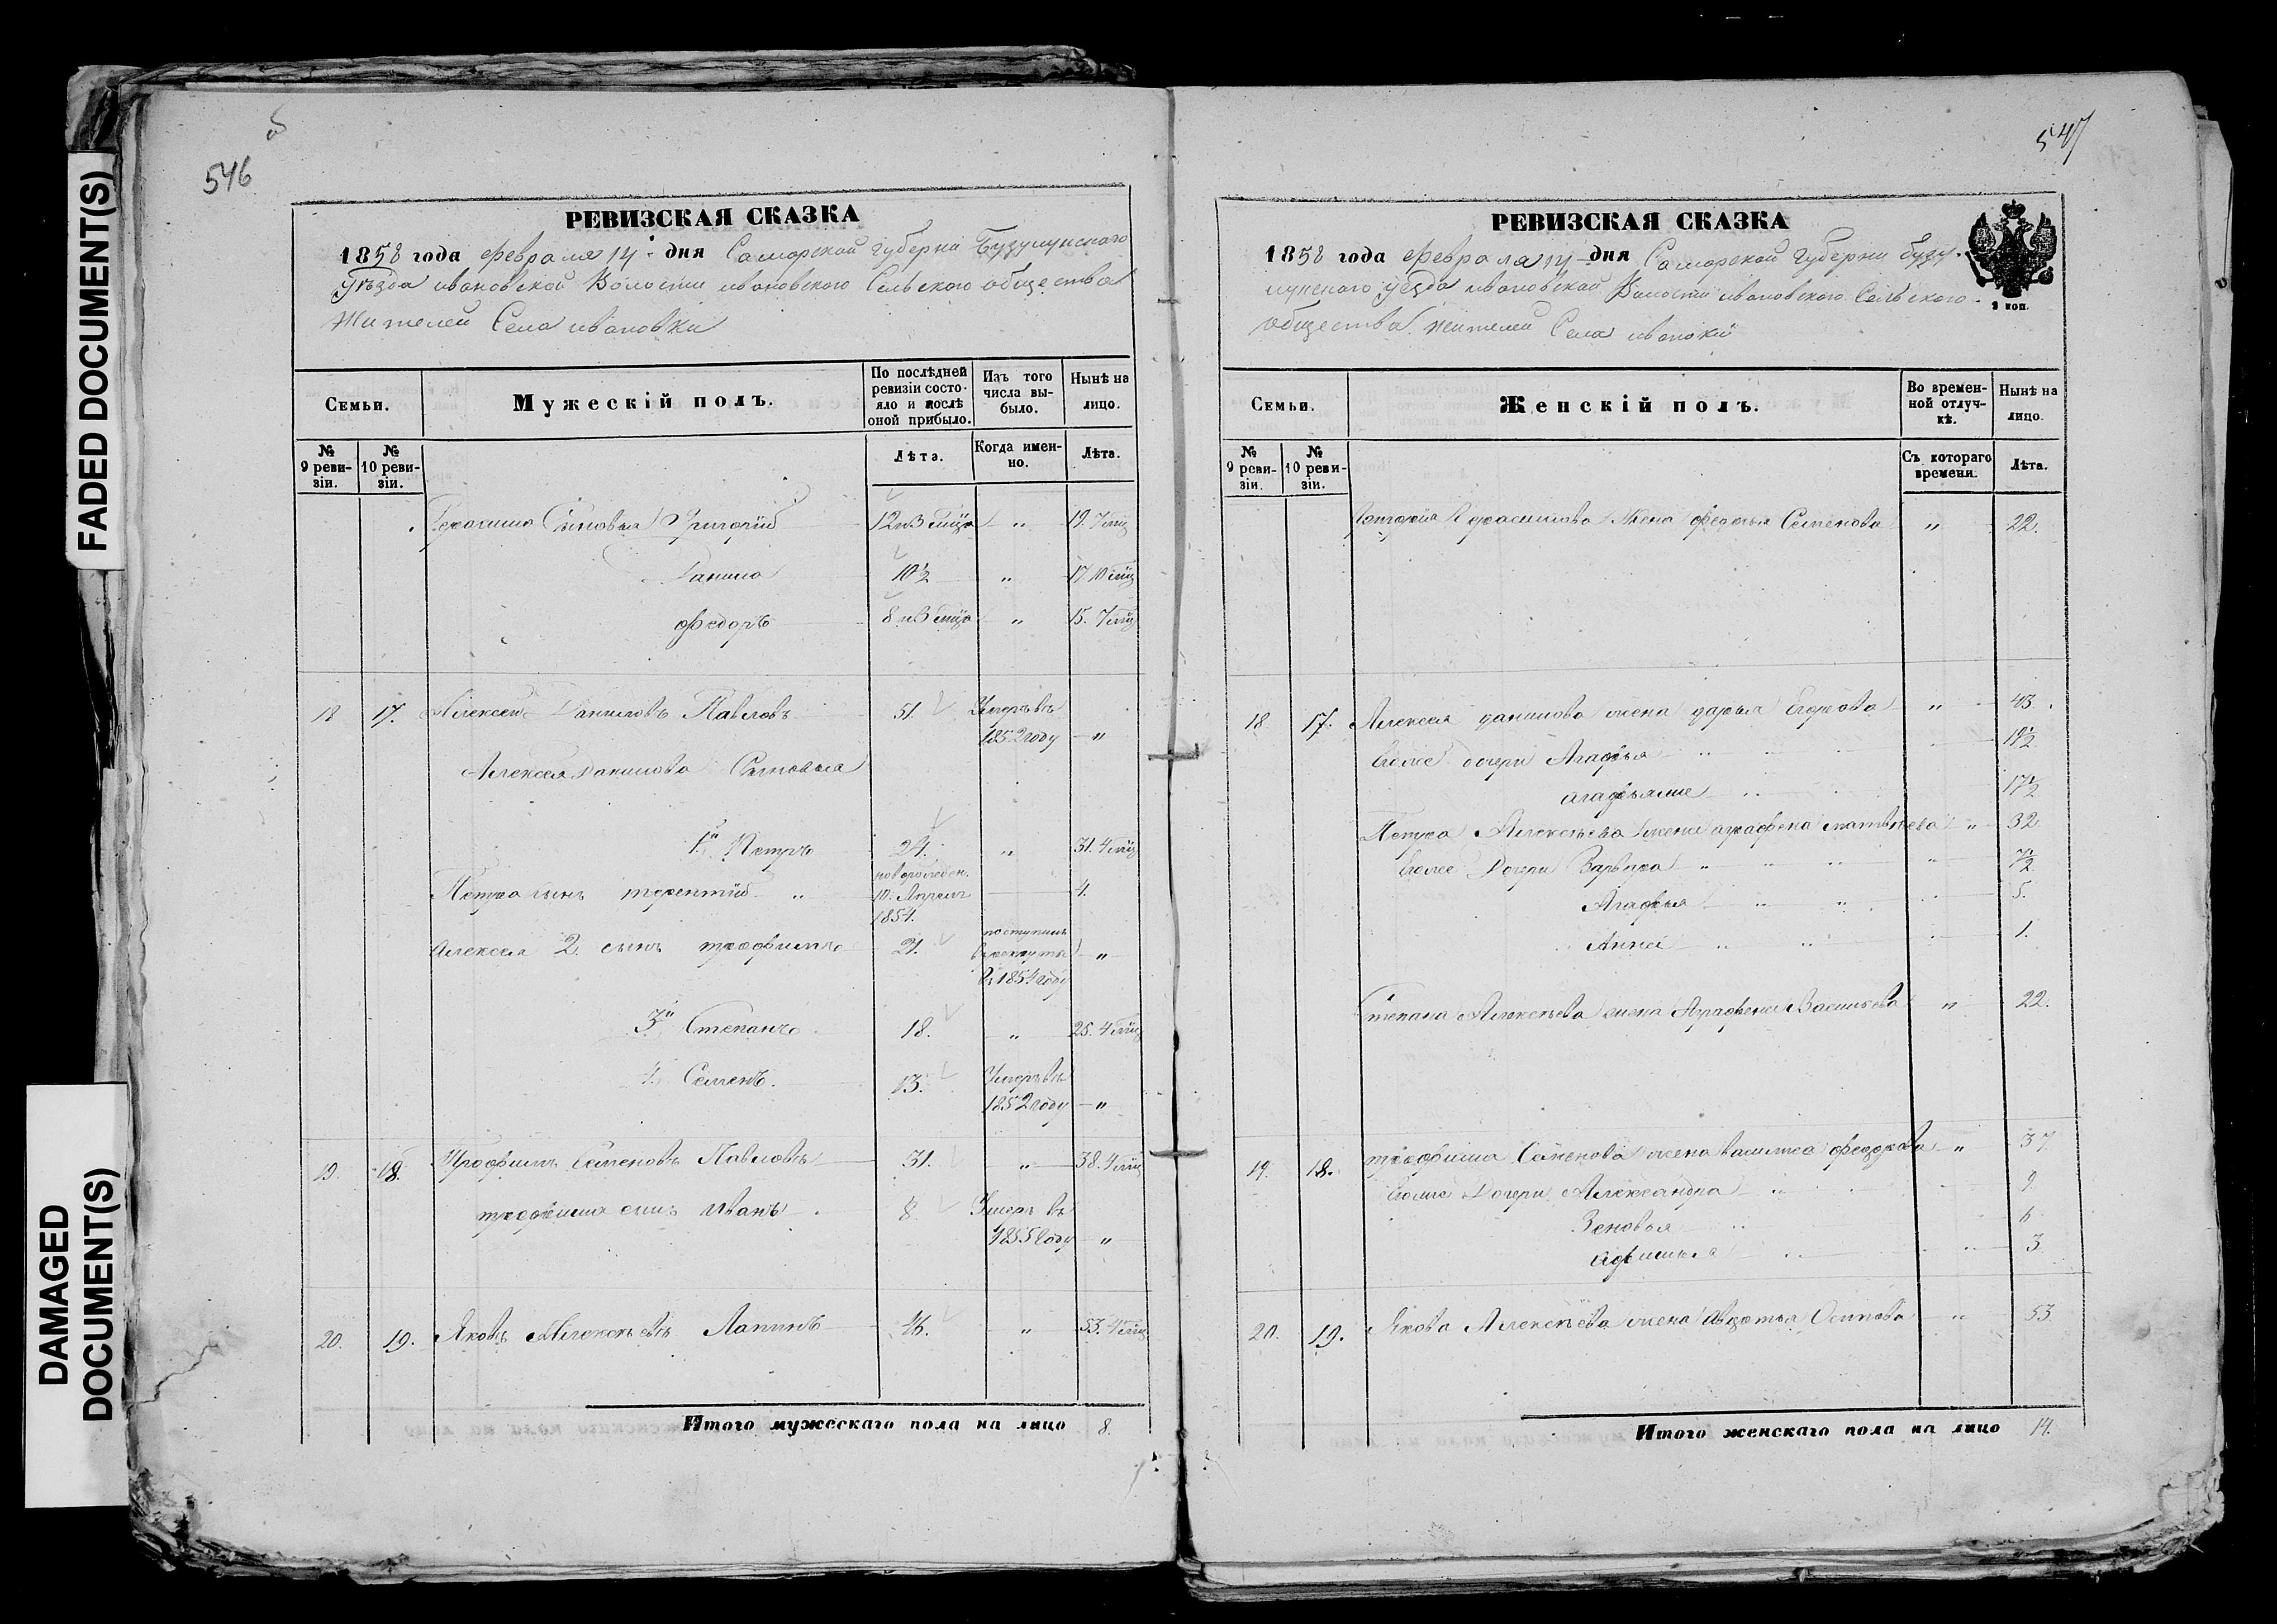 FADED DOCUMENT(S)
DAMAGED
DOCUMENT(S)
546
РЕВИЗСКАЯ СКАЗКА
1858 года февраля 14 дня Самарской губерни Бузулукского
Уѣзда ивановской Волости ивановского Сельского общества
Жителей Села ивановки
Семьи.
Мужескій полъ.
По послѣдней
ревизіи состо-
яло и послѣ
оной прибыло.
Изъ того
числа вы-
было.
Нынѣ на
лицо.
№
9 реви-
зіи.
№
10 реви-
зіи.
Лѣта.
Когда имен-
но.
Лѣта.
Герасима Сыновья Григорій 12 и 3 " 19. 7
Данило 10½ " 17. 10
федоръ 8 и 3 " 15. 7
18 17. Алексей Даниловъ Павловъ 51. Умеръ въ
1852 году "
Алексея Данилова Сыновья
1й Петръ 24. " 31. 4
новорожден.
Петра сынъ терентій " 10. Апреля 4.
1854.
поступилъ
Алексея 2 сынъ трофимъ 21. в рекруты "
въ 1854 году
3й Степанъ 18. " 25. 4
4. Семенъ. 13. Умеръ въ
1852 году "
19. 18. Трофимъ Семеновъ Павловъ 31. " 38. 4
трофима сынъ Иванъ 8 Умеръ въ
1855 году "
20. 19. Яковъ Алексѣевъ Лапинъ 46. " 53. 4
Итого мужескаго пола на лицо 8.
547
РЕВИЗСКАЯ СКАЗКА
1858 года февраля 14 дня Самарской Губерни Бузу-
лукского уезда ивановской Волости ивановского Сельского
общества жителей Села
2 коп.
Семьи.
Женскій полъ.
Во времен-
ной отлуч-
кѣ.
Нынѣ на
лицо.
№
9 реви-
зіи.
№
10 реви-
зіи.
Съ котораго
времени.
Лѣта.
Герасимова Жена федосья Семенова " 22.
18 17. Алексея данилова жена дарья Егорова " 43.
Ихже дочери Агафья " 19½
агафья же " 17½
Петра Алексѣева жена аграфена матвѣева " 32
Ихже Дочери Варвара " 7½
Агафья " 5.
Анна " 1.
Степана Алексѣева жена Аграфена Васильева " 22.
19. 18. трофима Семенова жена василиса федорова " 37
Ихже Дочери Александра " 9
Зеновья " 6
Афимья " 3
20. 19. Якова Алексѣева жена Авдотья Осипова " 53
Итого женскаго пола на лицо 14.